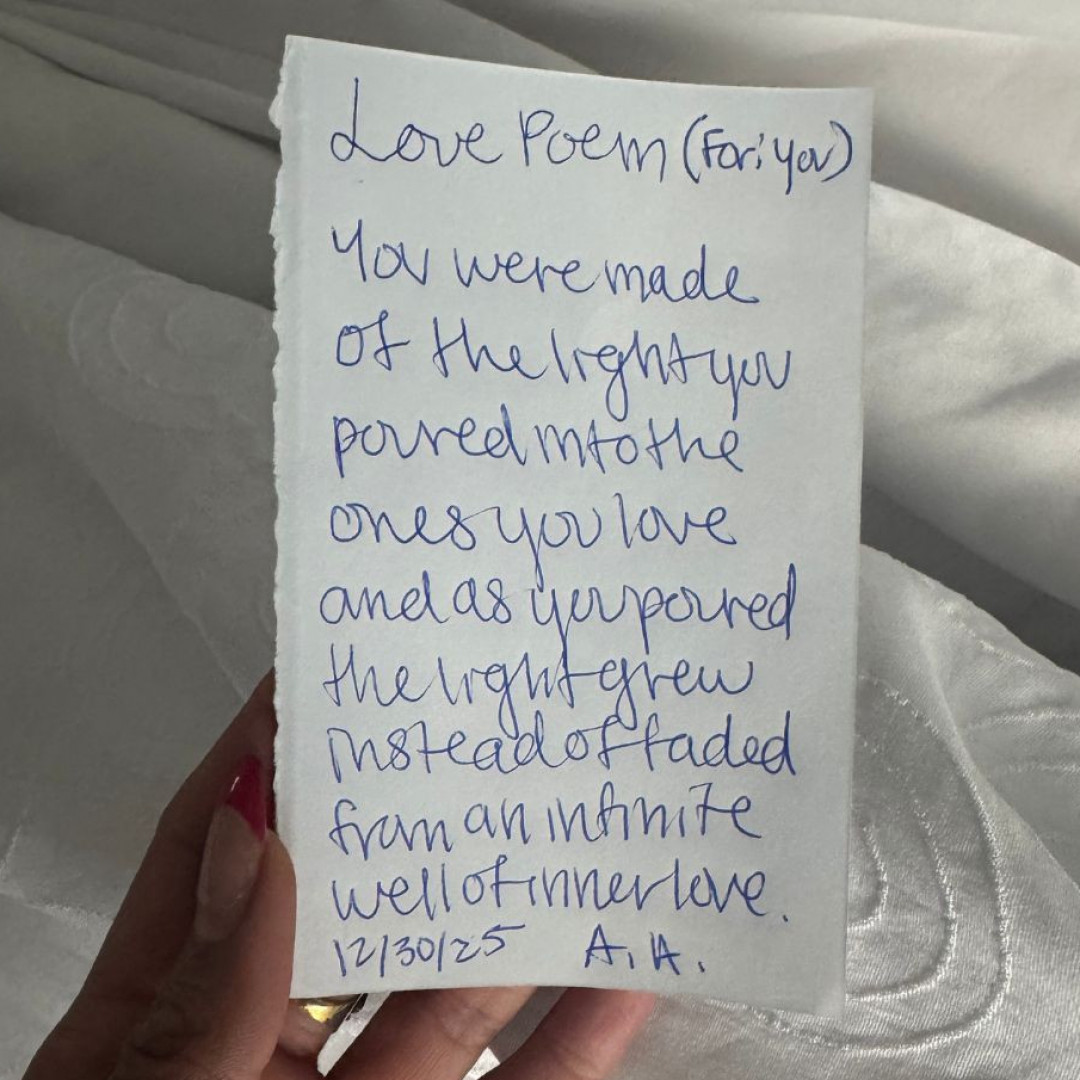 Love Poem (For: you)
You were made
of the light you
poured into the
ones you love
and as you poured
the light grew
instead of faded
from an infinite
well of inner love.
12/30/25 A.A.